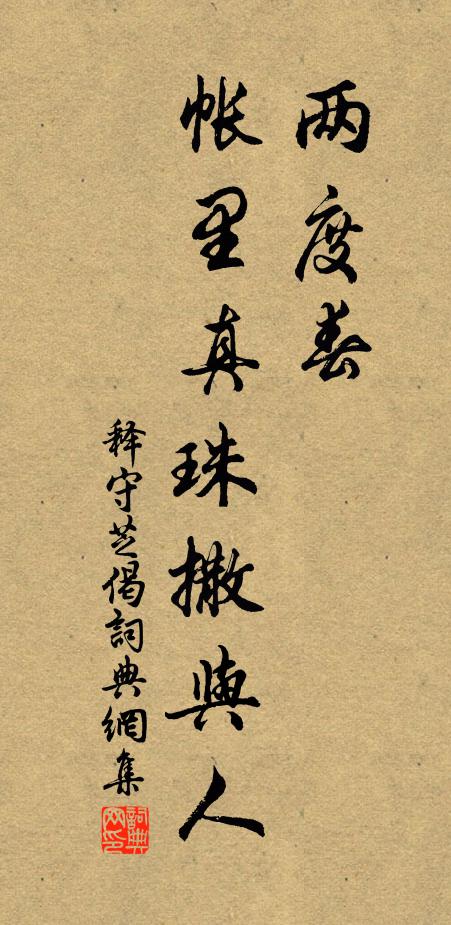 两度春
帐里真珠撒與人
释守芝偈詞典網集
詞典網印